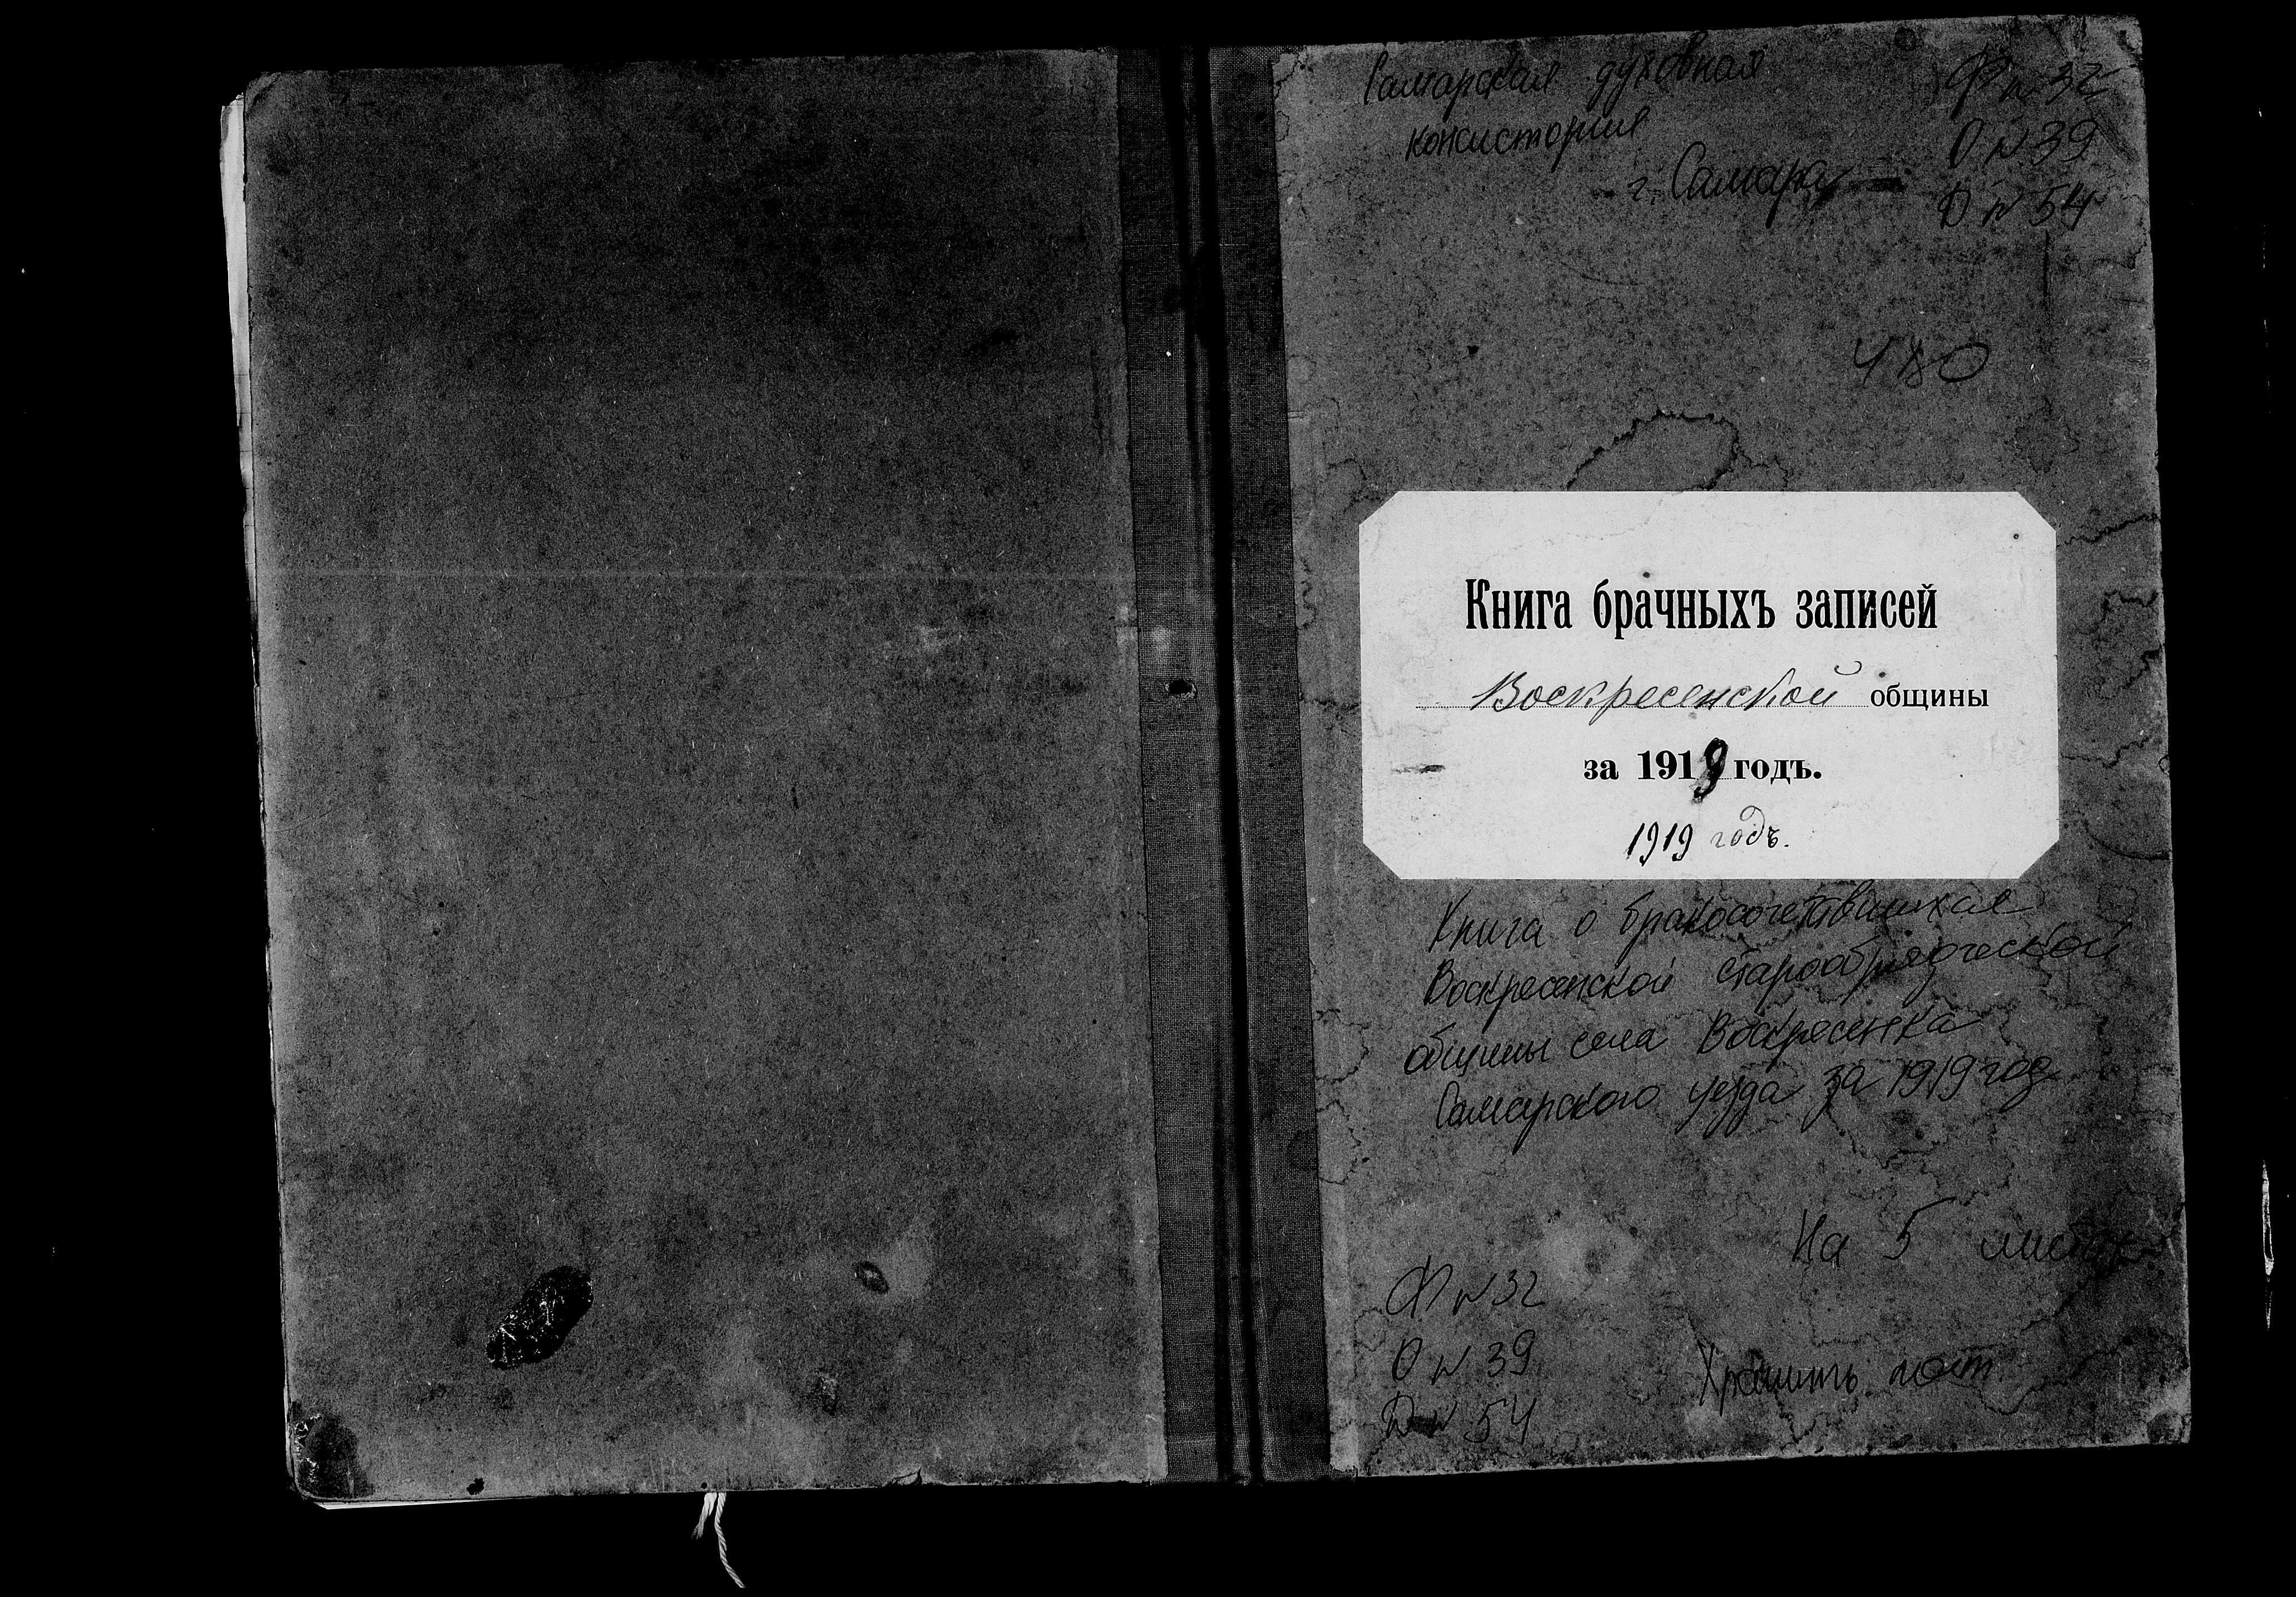 Самарская духовная
консистория
г. Самара
Ф № 32
О № 39
Д № 54
480
Книга брачныхъ записей
Воскресенской общины
за 1919 годъ.
1919 годъ.
Книга о бракосочетавшихся
Воскресенской старообрядческой
общины села Воскресенка
Самарского уезда за 1919 год
На 5 листах
Ф № 32
О № 39
Д № 54
Хранить пост.